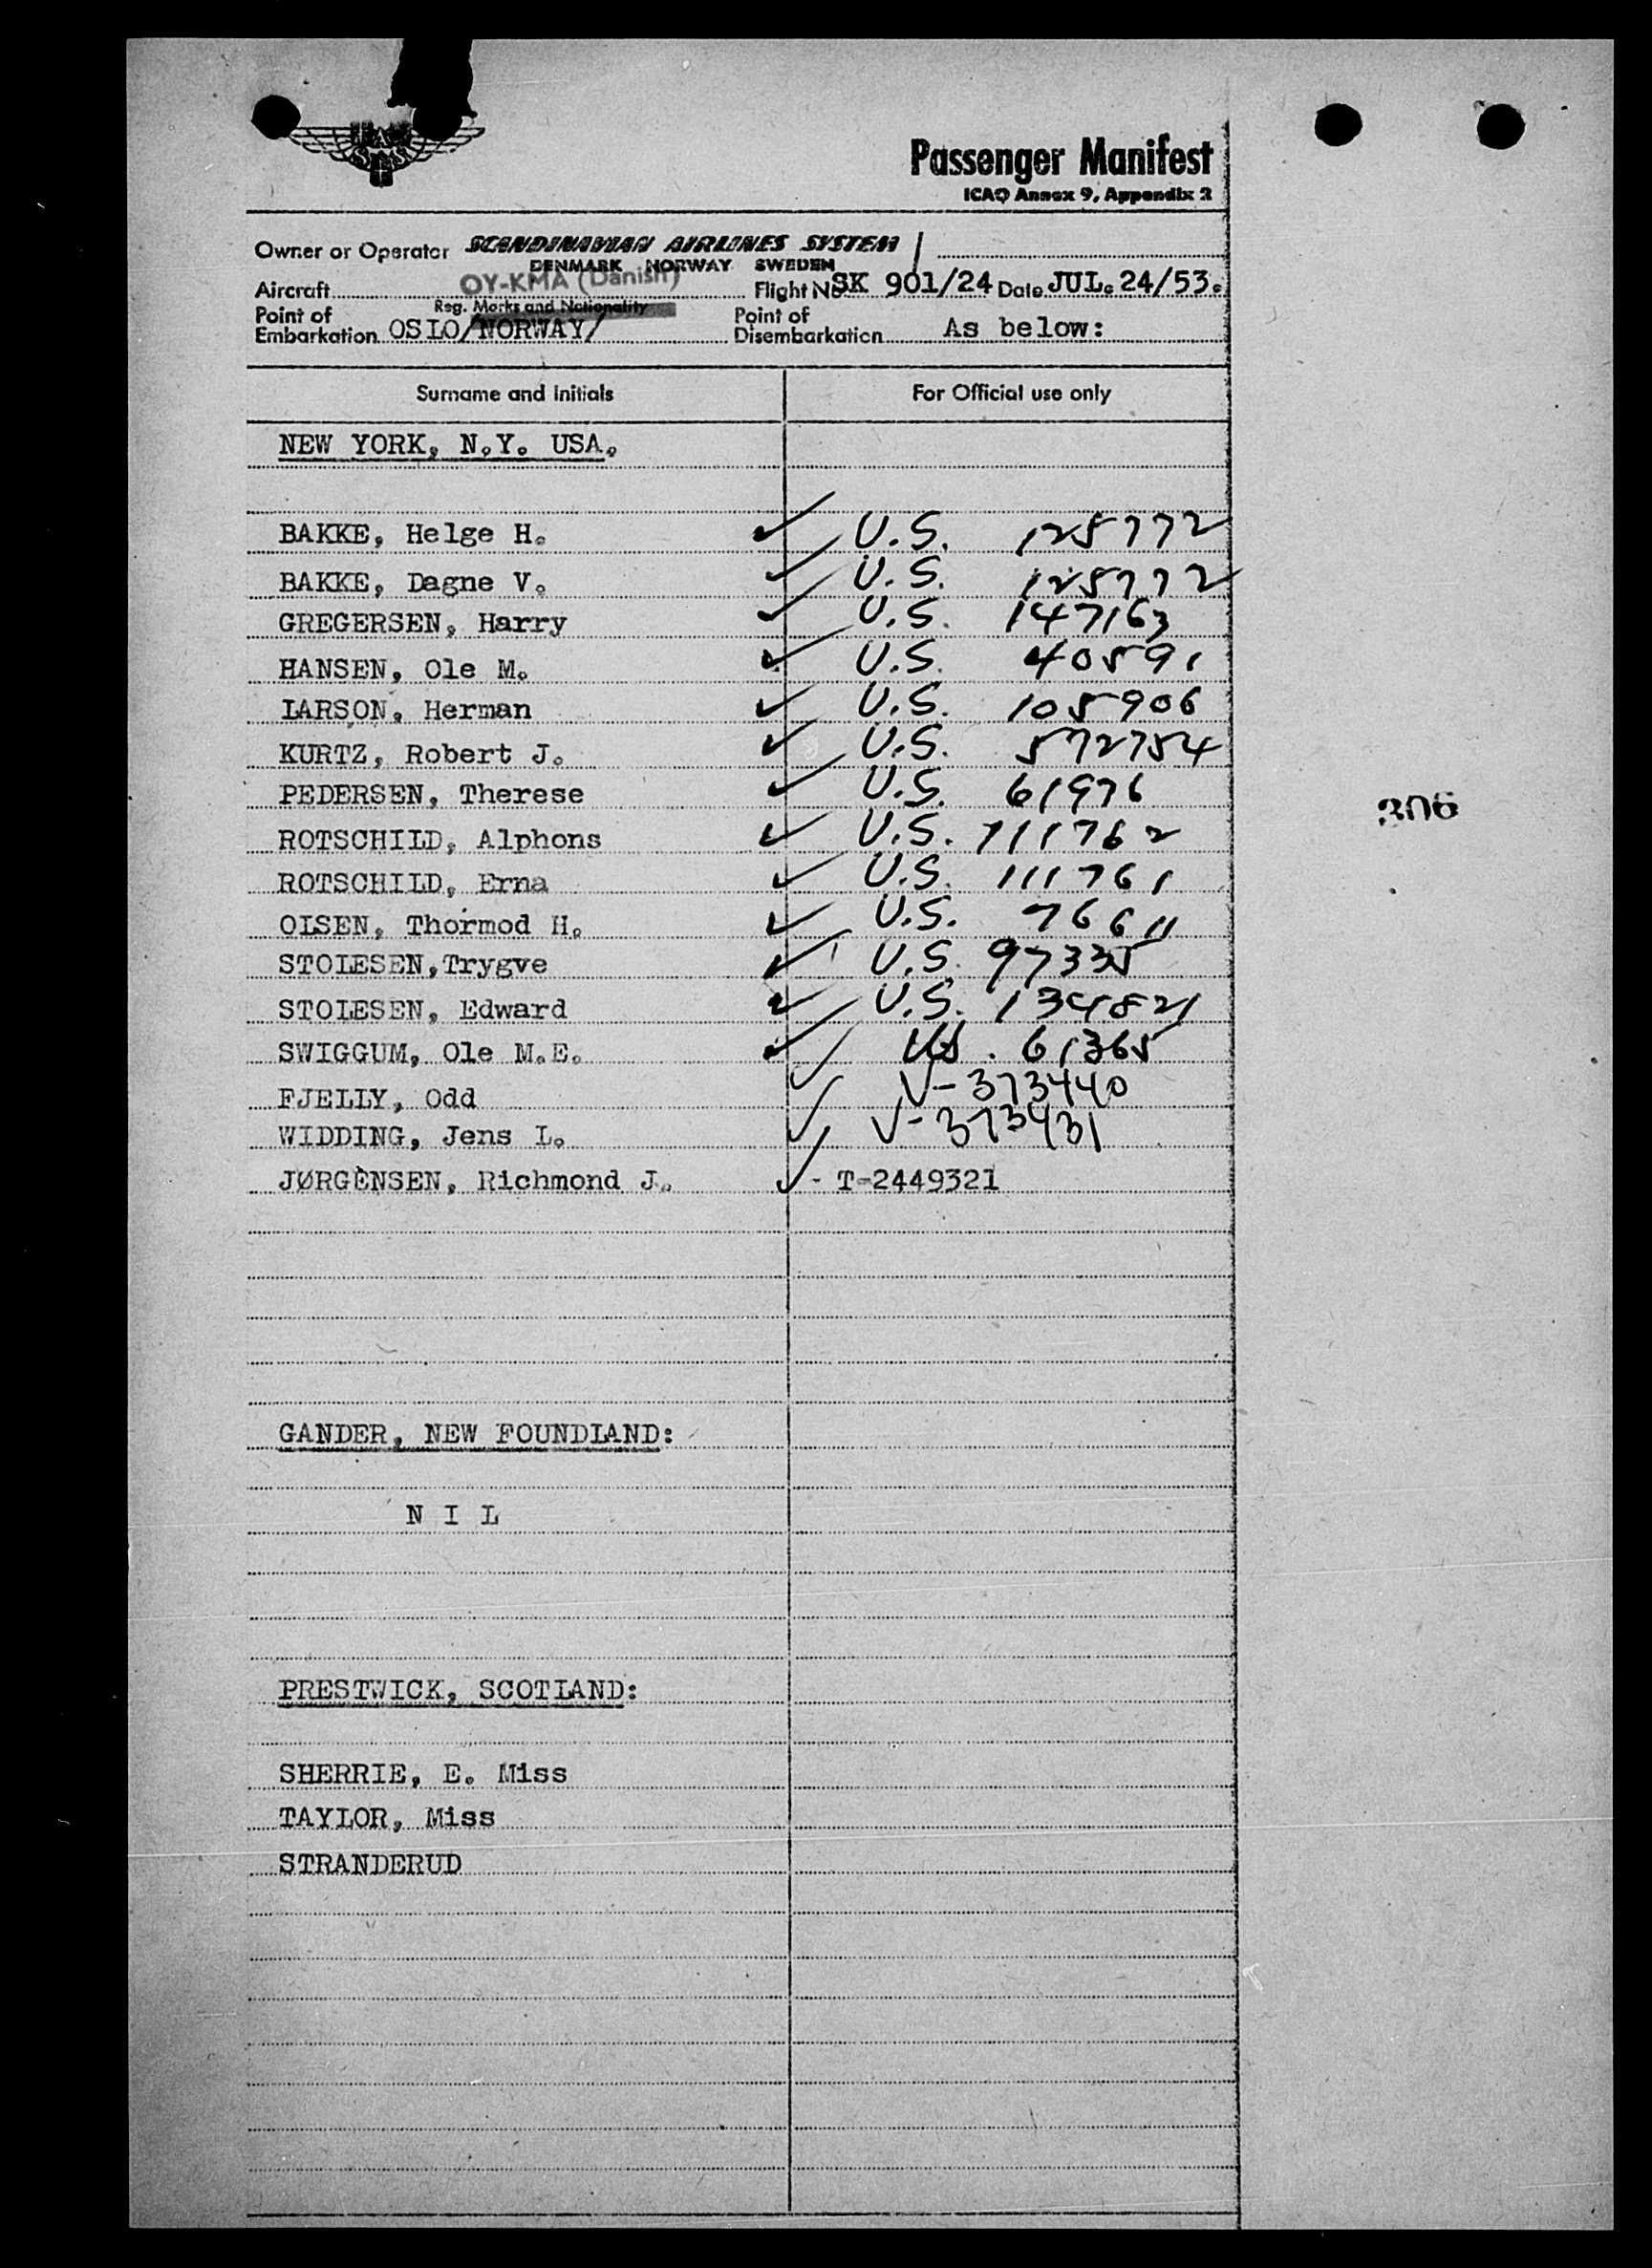 Passenger Manifest
ICAO Annex 9, Appendix 2
Owner or Operator SCANDINAVIAN AIRLINES SYSTEM
DENMARK NORWAY SWEDEN
Aircraft OY-KMA (Danish) Flight No SK 901/24 Date JUL. 24/53.
Reg. Marks and Nationality
Point of Embarkation OSLO/NORWAY/ Point of Disembarkation As below:
Surname and Initials For Official use only
NEW YORK, N.Y. USA.
BAKKE, Helge H. ✓ U.S. 125772
BAKKE, Dagne V. ✓ U.S. 125772
GREGERSEN, Harry ✓ U.S. 147163
HANSEN, Ole M. ✓ U.S. 40591
LARSON, Herman ✓ U.S. 105906
KURTZ, Robert J. ✓ U.S. 572754
PEDERSEN, Therese ✓ U.S. 61976
ROTSCHILD, Alphons ✓ U.S. 111762
ROTSCHILD, Erna ✓ U.S. 111761
OLSEN, Thormod H. ✓ U.S. 76611
STOLESEN, Trygve ✓ U.S. 97335
STOLESEN, Edward ✓ U.S. 134821
SWIGGUM, Ole M.E. ✓ US. 61365
FJELLY, Odd ✓ V-373440
WIDDING, Jens L. ✓ V-373431
JØRGENSEN, Richmond J. ✓ - T-2449321
306
GANDER, NEW FOUNDLAND:
N I L
PRESTWICK, SCOTLAND:
SHERRIE, E. Miss
TAYLOR, Miss
STRANDERUD